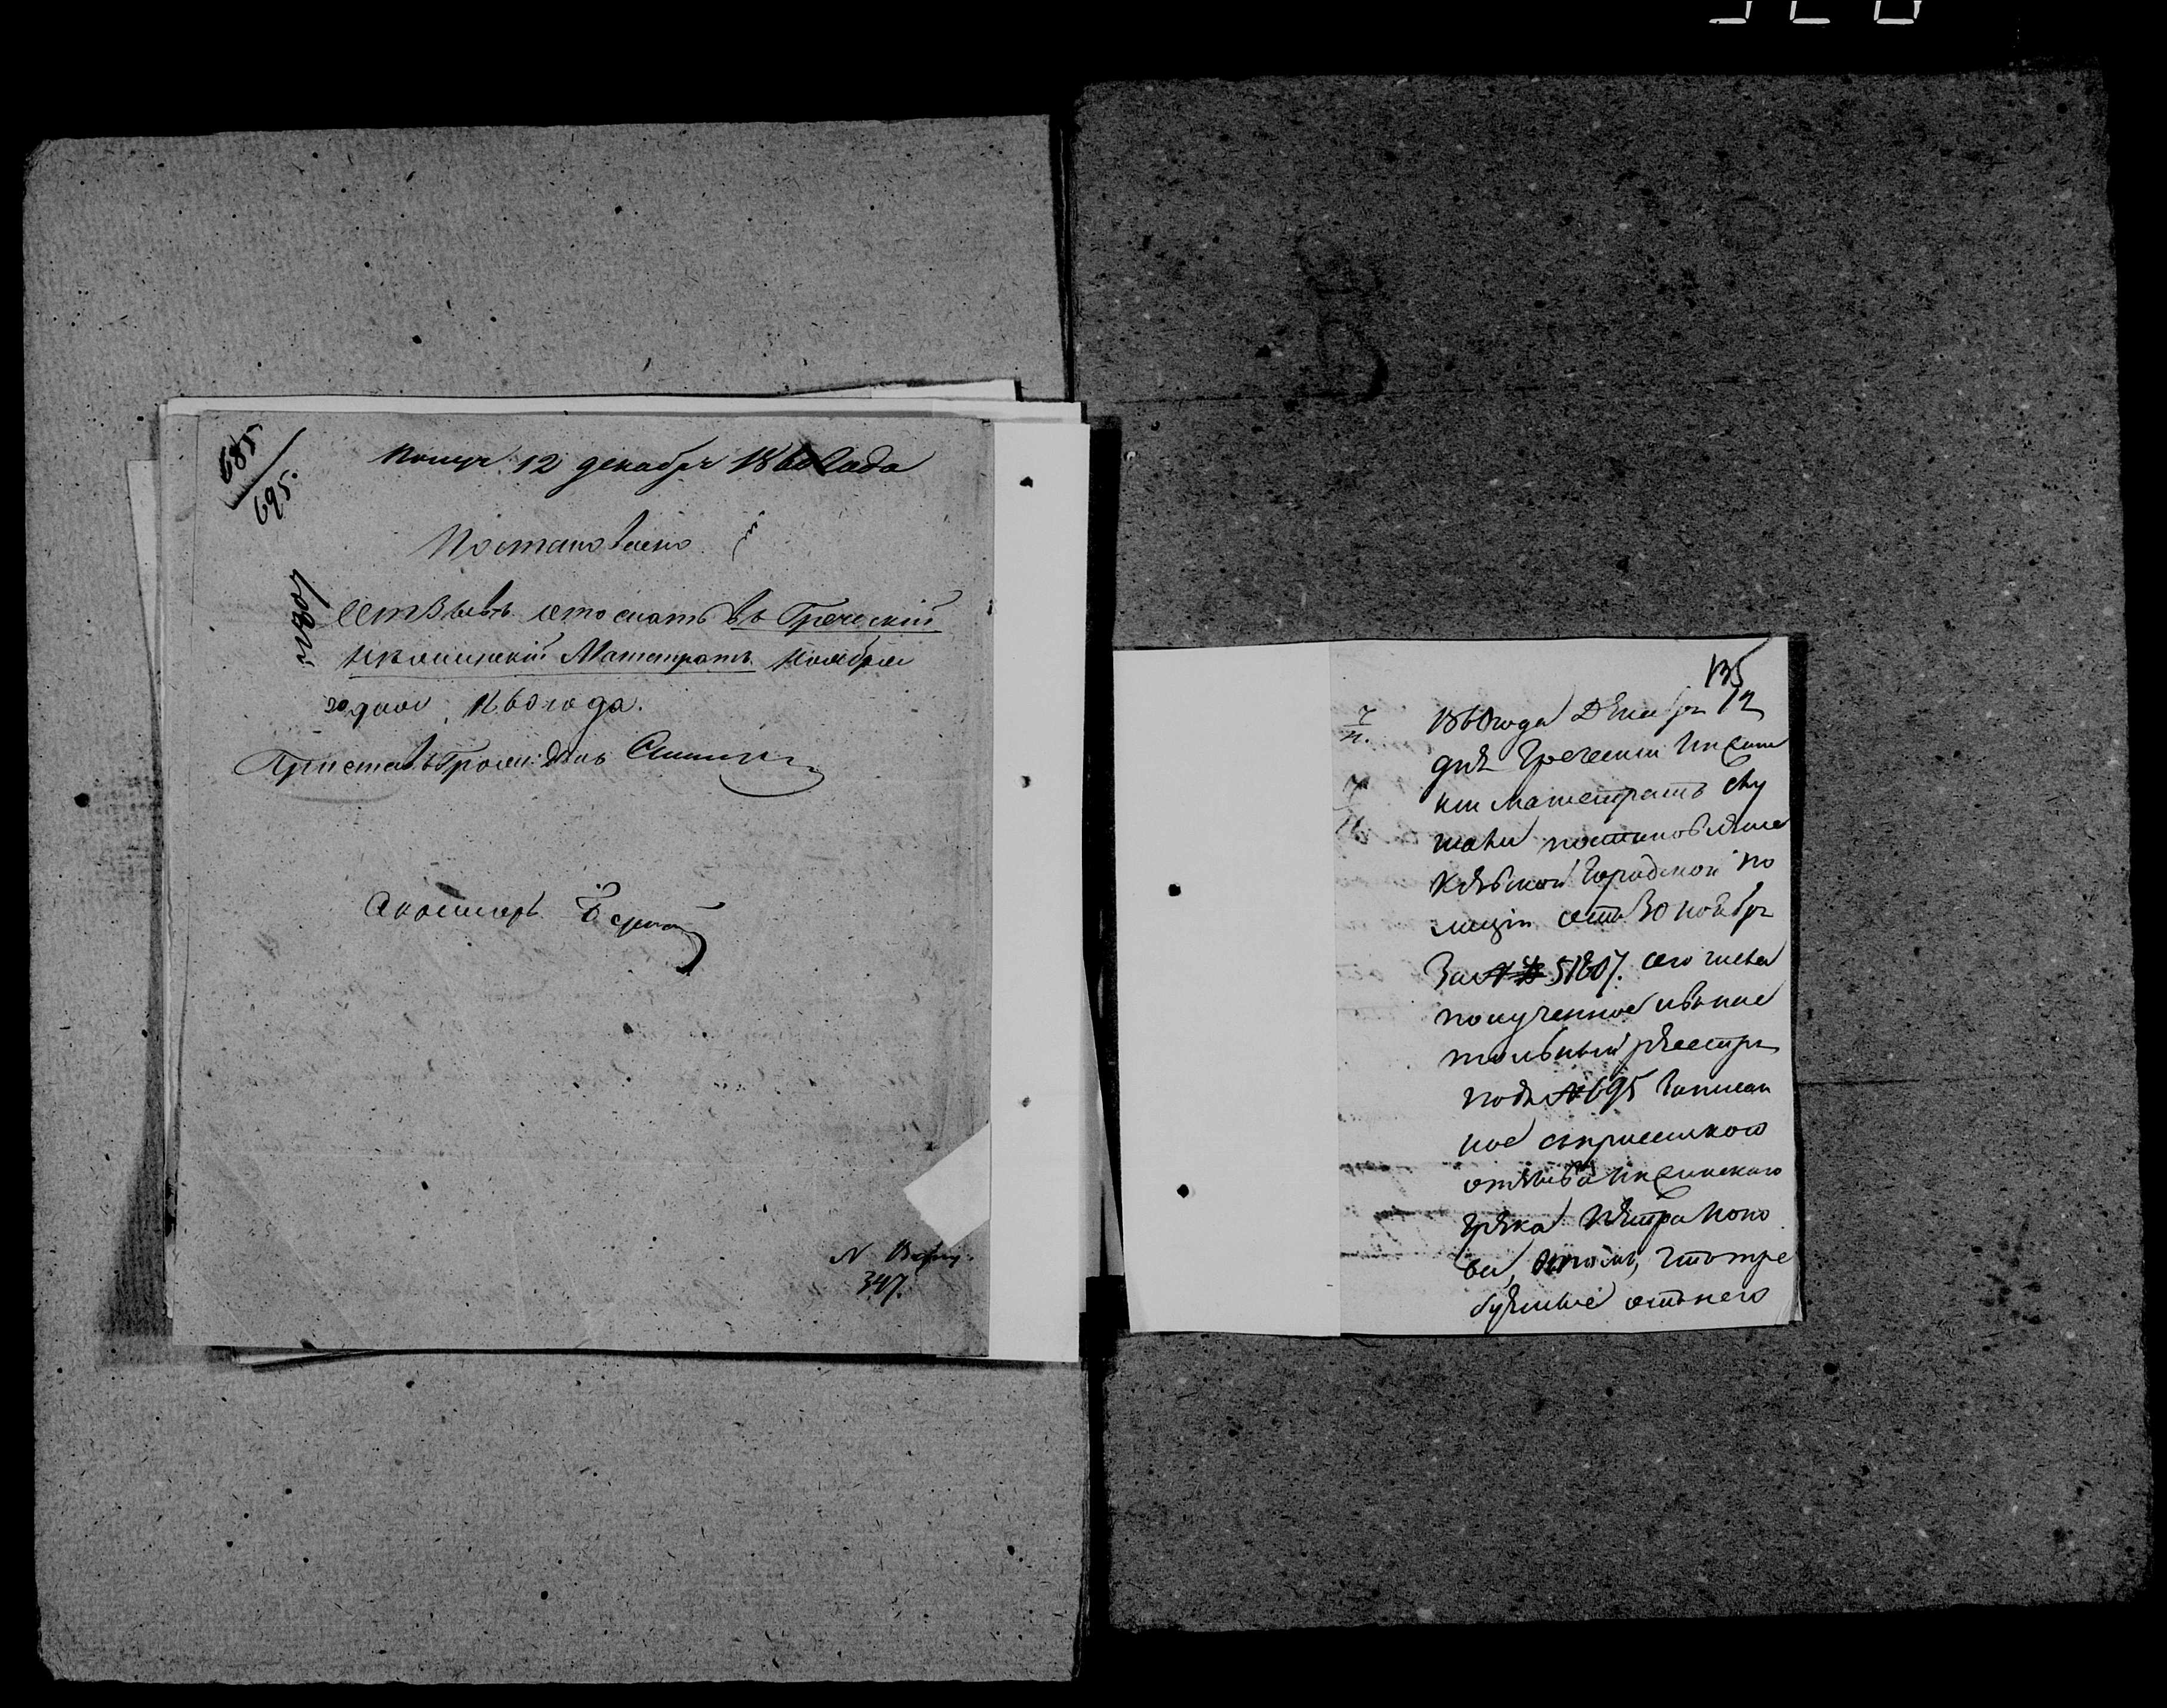 685
695.
Получ. 12 декабря 1860 года
Постановлено
51807
Отзывъ отослать въ Греческій
Нѣжинскій Магистратъ. Ноября
30 дня 1860 года.
Приставъ Гражд: Дѣлъ
N
347.
135
1860 года Декабря 12
дня Греческій Нѣжин
кій Магистратъ слу
шали постановленіе
Кіевской Городской по
лиціи отъ 30 Ноября
За № 51807. сего числа
полученное и въ нас
тольный реестръ
подъ № 695 записан
ное съ прописаніемъ
отзыва Нѣжинскаго
Грека Петра Попо
ва, о томъ, что тре
буемые отъ него